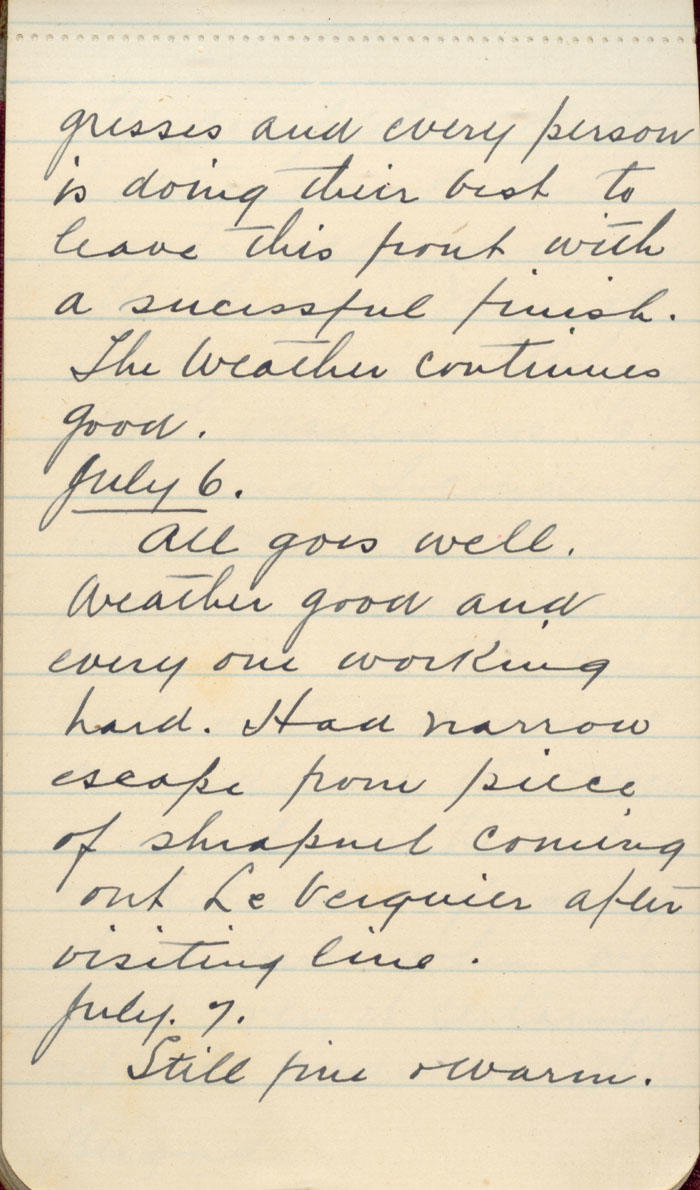 gresses and every person
is doing their best to
leave this front with
a sucessful finish.
The Weather continues
good.
July 6.
All goes well.
Weather good and
every one working
hard. Had narrow
escape from piece
of shrapnel coming
out Le Verguier after
visiting line.
July. 7.
Still fine + warm.